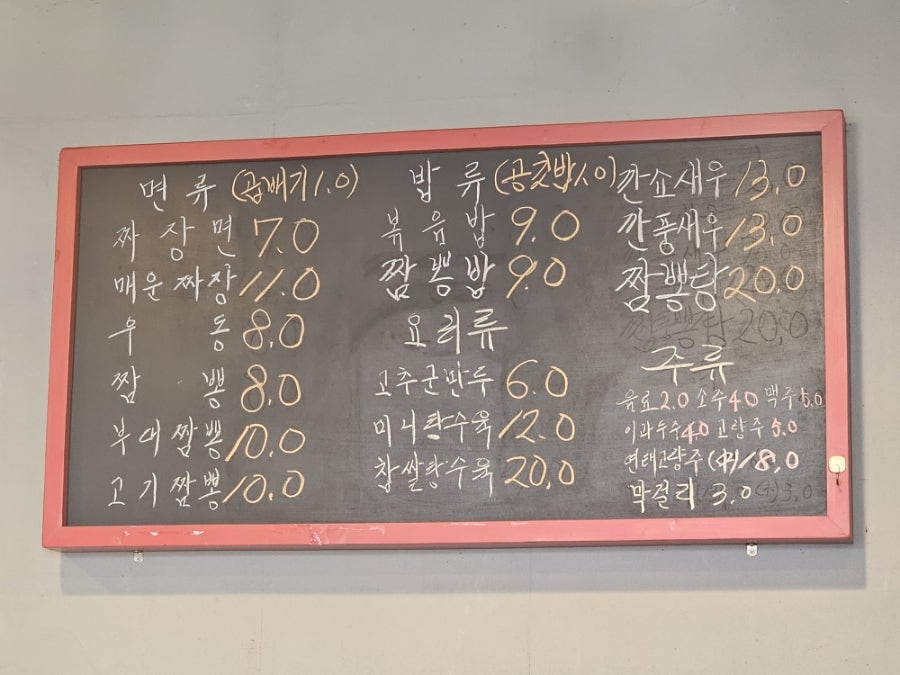 면 류 (곱빼기 1.0)
짜 장 면 7.0
매운 짜장 11.0
우 동 8.0
짬 뽕 8.0
부 대 짬 뽕 10.0
고 기 짬 뽕 10.0
밥 류 (공깃밥 1.0)
볶 음 밥 9.0
짬 뽕 밥 9.0
요 리 류
고추군만두 6.0
미니탕수육 12.0
찹쌀탕수육 20.0
깐쇼새우 13.0
깐풍새우 13.0
짬뽕탕 20.0
짬뽕탕 20.0
주 류
음료 2.0 소주 4.0 맥주 5.0
이과두주 4.0 고량주 5.0
연태고량주 (中) 18.0
막걸리 3.0